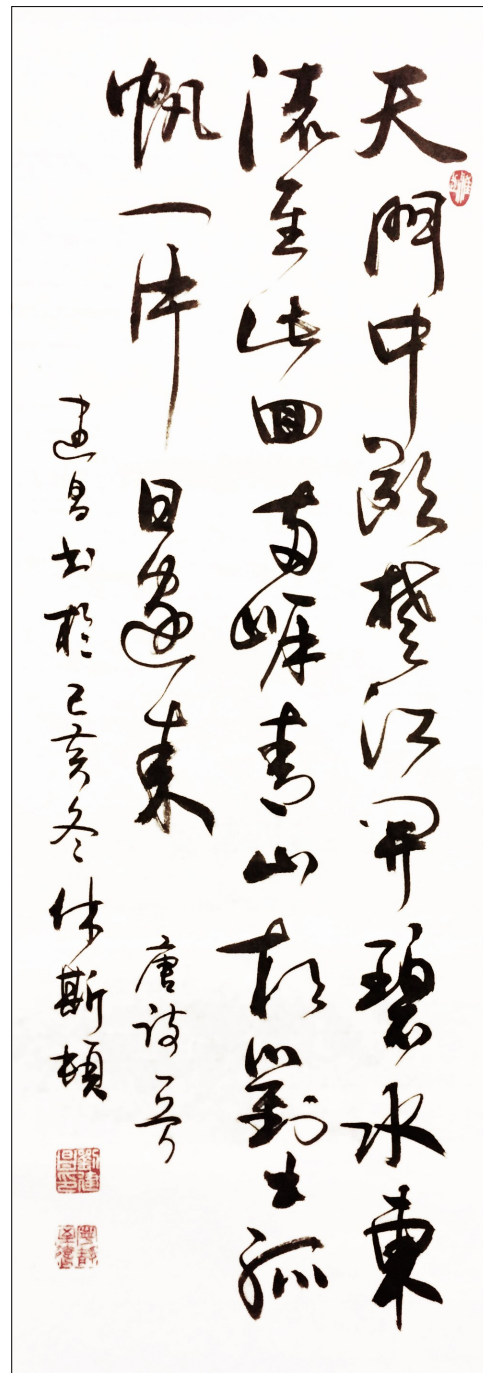 天門中斷楚江開碧水東
流至此回兩岸青山相對出孤
帆一片日邊來 唐詩一首
建昌書於己亥冬休斯頓
劉建昌印
寧靜致遠